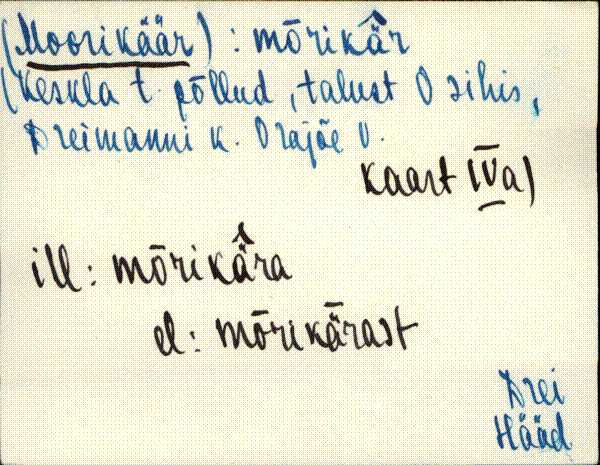 (Moorikäär) : mōrikä̂r
(Keskla t. põllud, talust O sihis,
Dreimanni k. Orajõe v.
kaart IVa)
ill: mōrikä̂ra
el: mōrikǟrast
Drei
Hääd